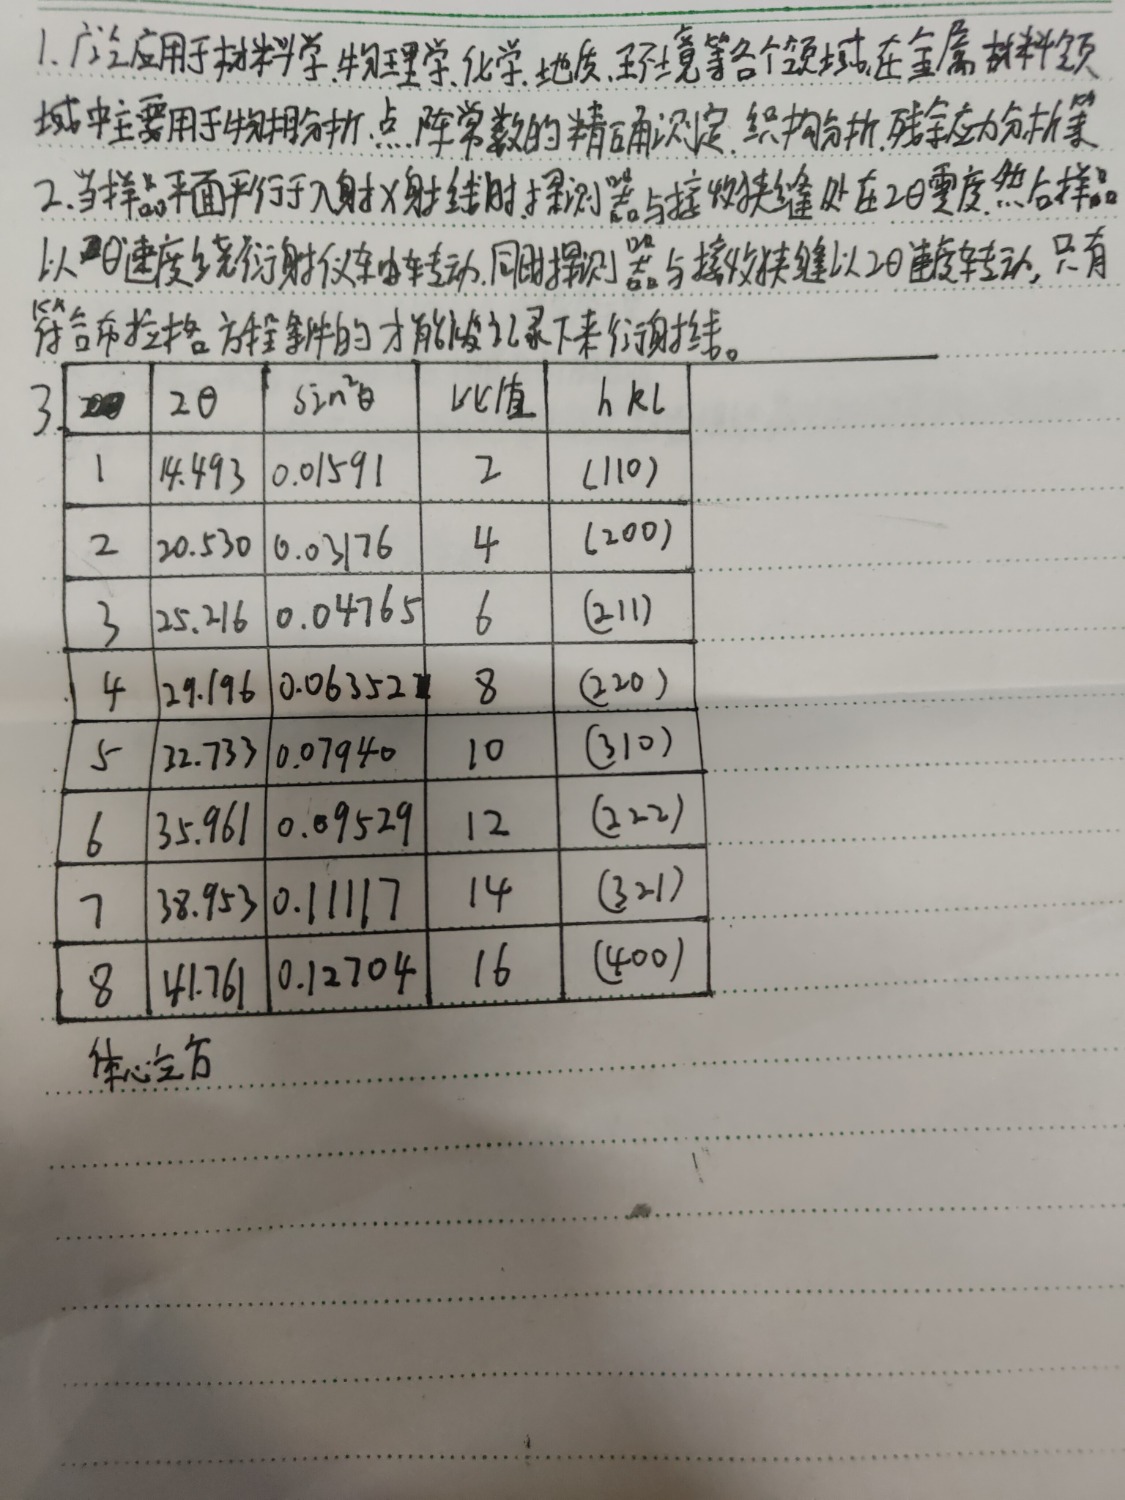 1. 广泛应用于材料学、物理学、化学、地质、环境等各个领域,在金属材料领
域中主要用于物相分析、点阵常数的精确测定、织构分析、残余应力分析等
2. 当样品平面平行于入射X射线时,探测器与接收狭缝处在2θ零度,然后样品
以θ速度绕衍射仪车由转动,同时探测器与接收狭缝以2θ速度转动,只有
符合布拉格方程条件的才能被记录下来衍射线。
3. 2θ sin²θ 比值 hkl
1 14.493 0.01591 2 (110)
2 20.530 0.03176 4 (200)
3 25.216 0.04765 6 (211)
4 29.196 0.06352 8 (220)
5 32.733 0.07940 10 (310)
6 35.961 0.09529 12 (222)
7 38.953 0.11117 14 (321)
8 41.761 0.12704 16 (400)
体心立方